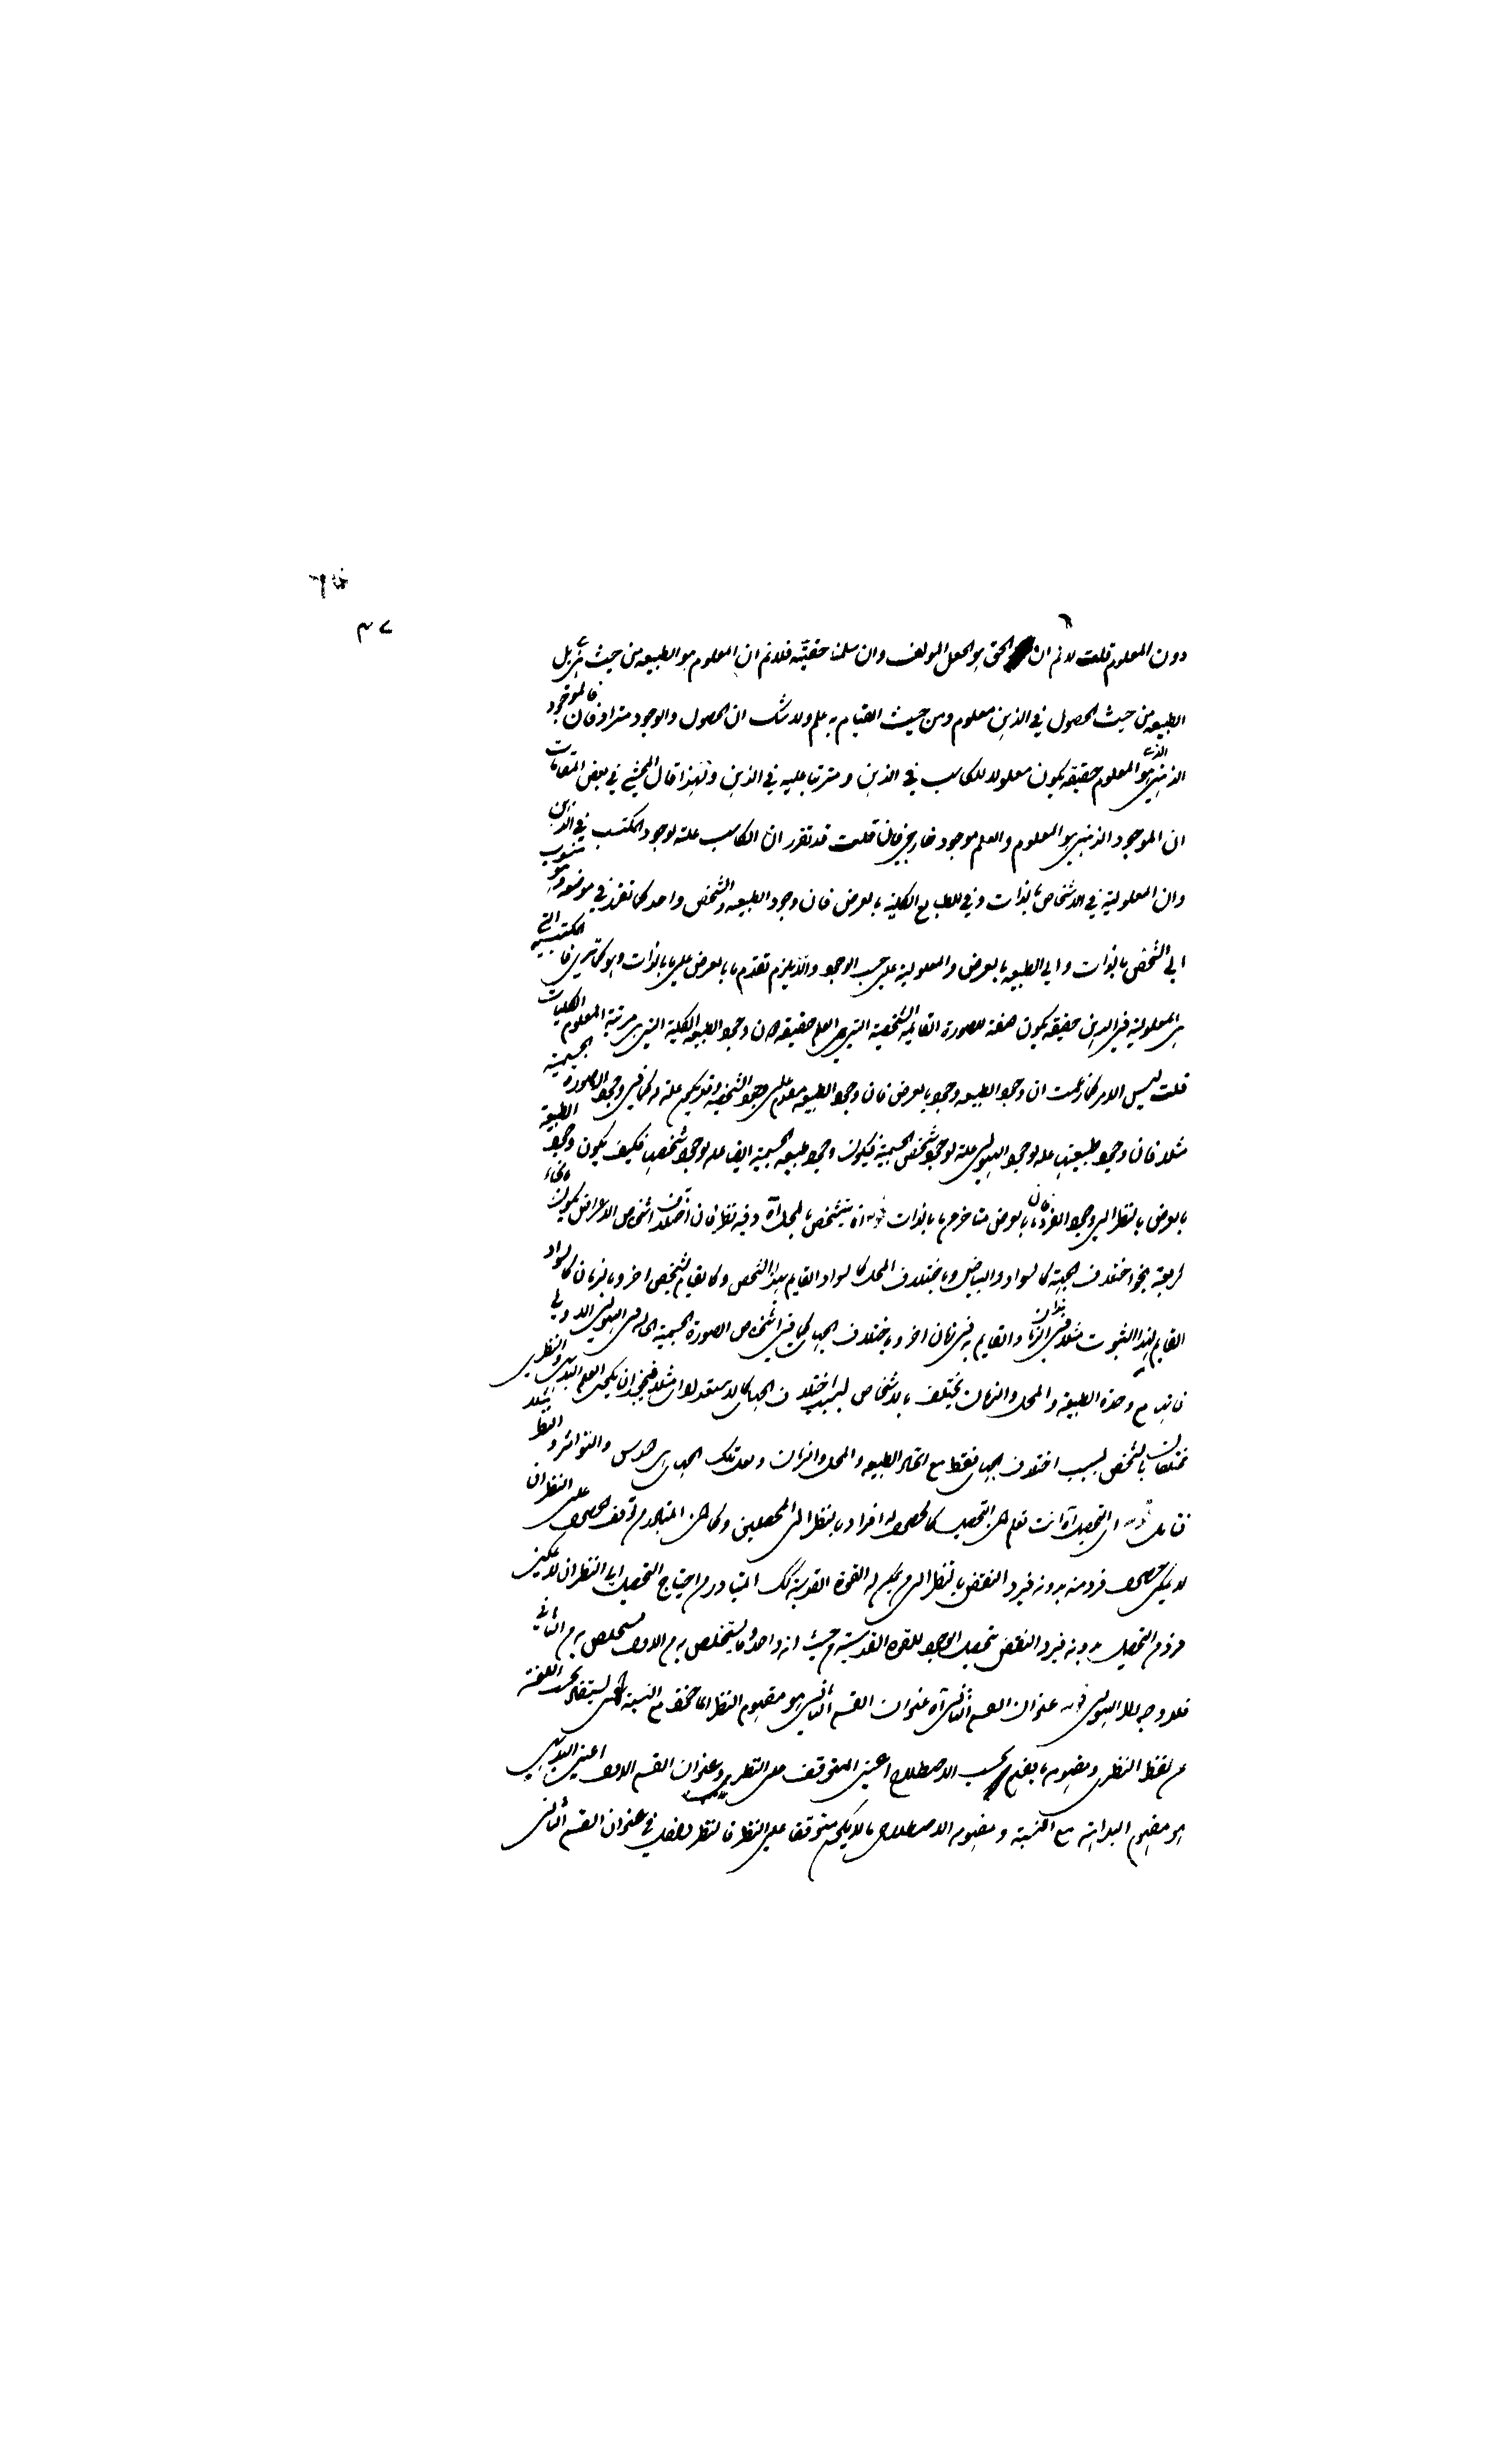 ٣٧
دون المعلوم قلت لا نم ان الحق هو الجعل المولف وان سلمنا حقيته فلا نم ان المعلوم هو الطبيعه من حيث هي بل
الطبيعه من حيث الحصول في الذهن معلوم ومن حيث القيام به علم ولا شك ان الحصول والوجود مترادفان فالموجود
الذهني الذي هو المعلوم حقيقه يكون معلولا للكاسب في الذهن ومترتبا عليه في الذهن ولهذا قال المحشي في بعض المقامات
ان الموجود الذهني هو المعلوم والعلم موجود خارجي فان قلت قد تقرر ان الكاسب علة لوجود المكتسب في الذهن
وان المعلولية في الاشخاص بالذات وفي الطبايع الكلية بالعرض فان وجود الطبيعه والشخص واحد كما تقرر في موضعه وهو منسوب
الى الشخص بالذات والى الطبيعه بالعرض والمعلولية على حسب الوجود والا يلزم تقدم ما بالعرض على ما بالذات وهو كما ترى فالمكتسبية التي
هي المعلولية في الذهن حقيقه يكون صفة للصورة القائمة الشخصية التي هي العلم حقيقه لان وجود الطبيعه الكلية التي هي مرتبة المعلوم
قلت ليس الامر كما زعمت ان وجود الطبيعه وجود بالعرض فان وجود الطبيعه مقدم على وجود الشخصية وقد يكون علة له كما في وجود الصورة الجسمية
مثلا فان وجود طبيعتها علة لوجود الهيولى علة لوجود شخص الجسمية فيكون وجود طبيعه الجسمية ايضا علة لوجود شخصها فكيف يكون وجود الطبيعة
بالعرض بالنظر الى وجود الفرد فان ما بالعرض متاخر عن ما بالذات قوله اذ يتشخص بالمحل اه وفيه نظر فان اختلاف اشخاص الاعراض يكون بانحاء
اربعة بنحو اختلاف المهية كالسواد والبياض وباختلاف المحل كالسواد القايم بهذا الشخص وكالقايم بشخص اخر وبالزمان كالسواد
القايم بهذا الثوب مثلا في هذا الزمان والقايم به في زمان اخر وباختلاف الجهات كما في اشخاص الصورة الجسمية الحالة في الهيولى الاولى
فانها مع وحدة الطبيعة والمحل والزمان يختلف بالاشخاص بسبب اختلاف الجهات كالاستعدادات مثلا فيجوز ان يكون العلم البديهي والنظري
مختلفان بالشخص بسبب اختلاف الجهات فقط مع اتحاد الطبيعه والمحل والزمان ولعل تلك الجهات هي الحدس والتواتر والنظر مثلا
فتامل قوله اي التحصيل اه انت تعلم ان التحصيل كالحصول له افراد بالنظر الى المحصلين وكما ان المتبادر من توقف الحصول على النظر ان
لا يمكن حصول فرد منه بدونه فيرد النقض بالنظر الى من يكون له القوة القدسية كذلك المتبادر من احتياج التحصيل الى النظر ان لا يمكن
فرد من التحصيل بدونه فيرد النقض بتحصيل الواجد للقوة القدسية من حيث انه واحد وما يستخلص به من الاول يستخلص به من الثاني
فلا وجه للـ قوله عنوان القسم الثاني اه عنوان القسم الثاني هو مفهوم النظر الماخوذ مع النسبة التي يستفاد بحسب اللغة
من لفظ النظري ومفهومه بحسب الاصطلاح اعني المتوقف على النظر وعنوان القسم الاول اعني البديهي
هو مفهوم البداهة مع النسبة ومفهومه الاصطلاحي ما لا يكون متوقفا على النظر فالنظر داخل في عنوان القسم الثاني